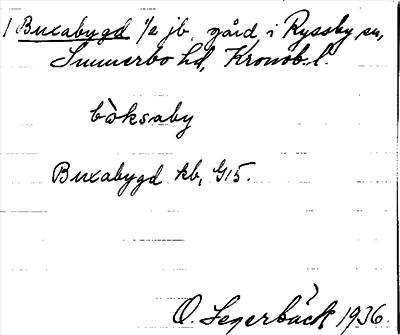 1 Buxabygd 1/2 jb, gård i Ryssby sn,
Sunnerbo hd, Kronob. l.
bòksaby
Buxabygd kb, G15.
O. Segerbäck 1936.